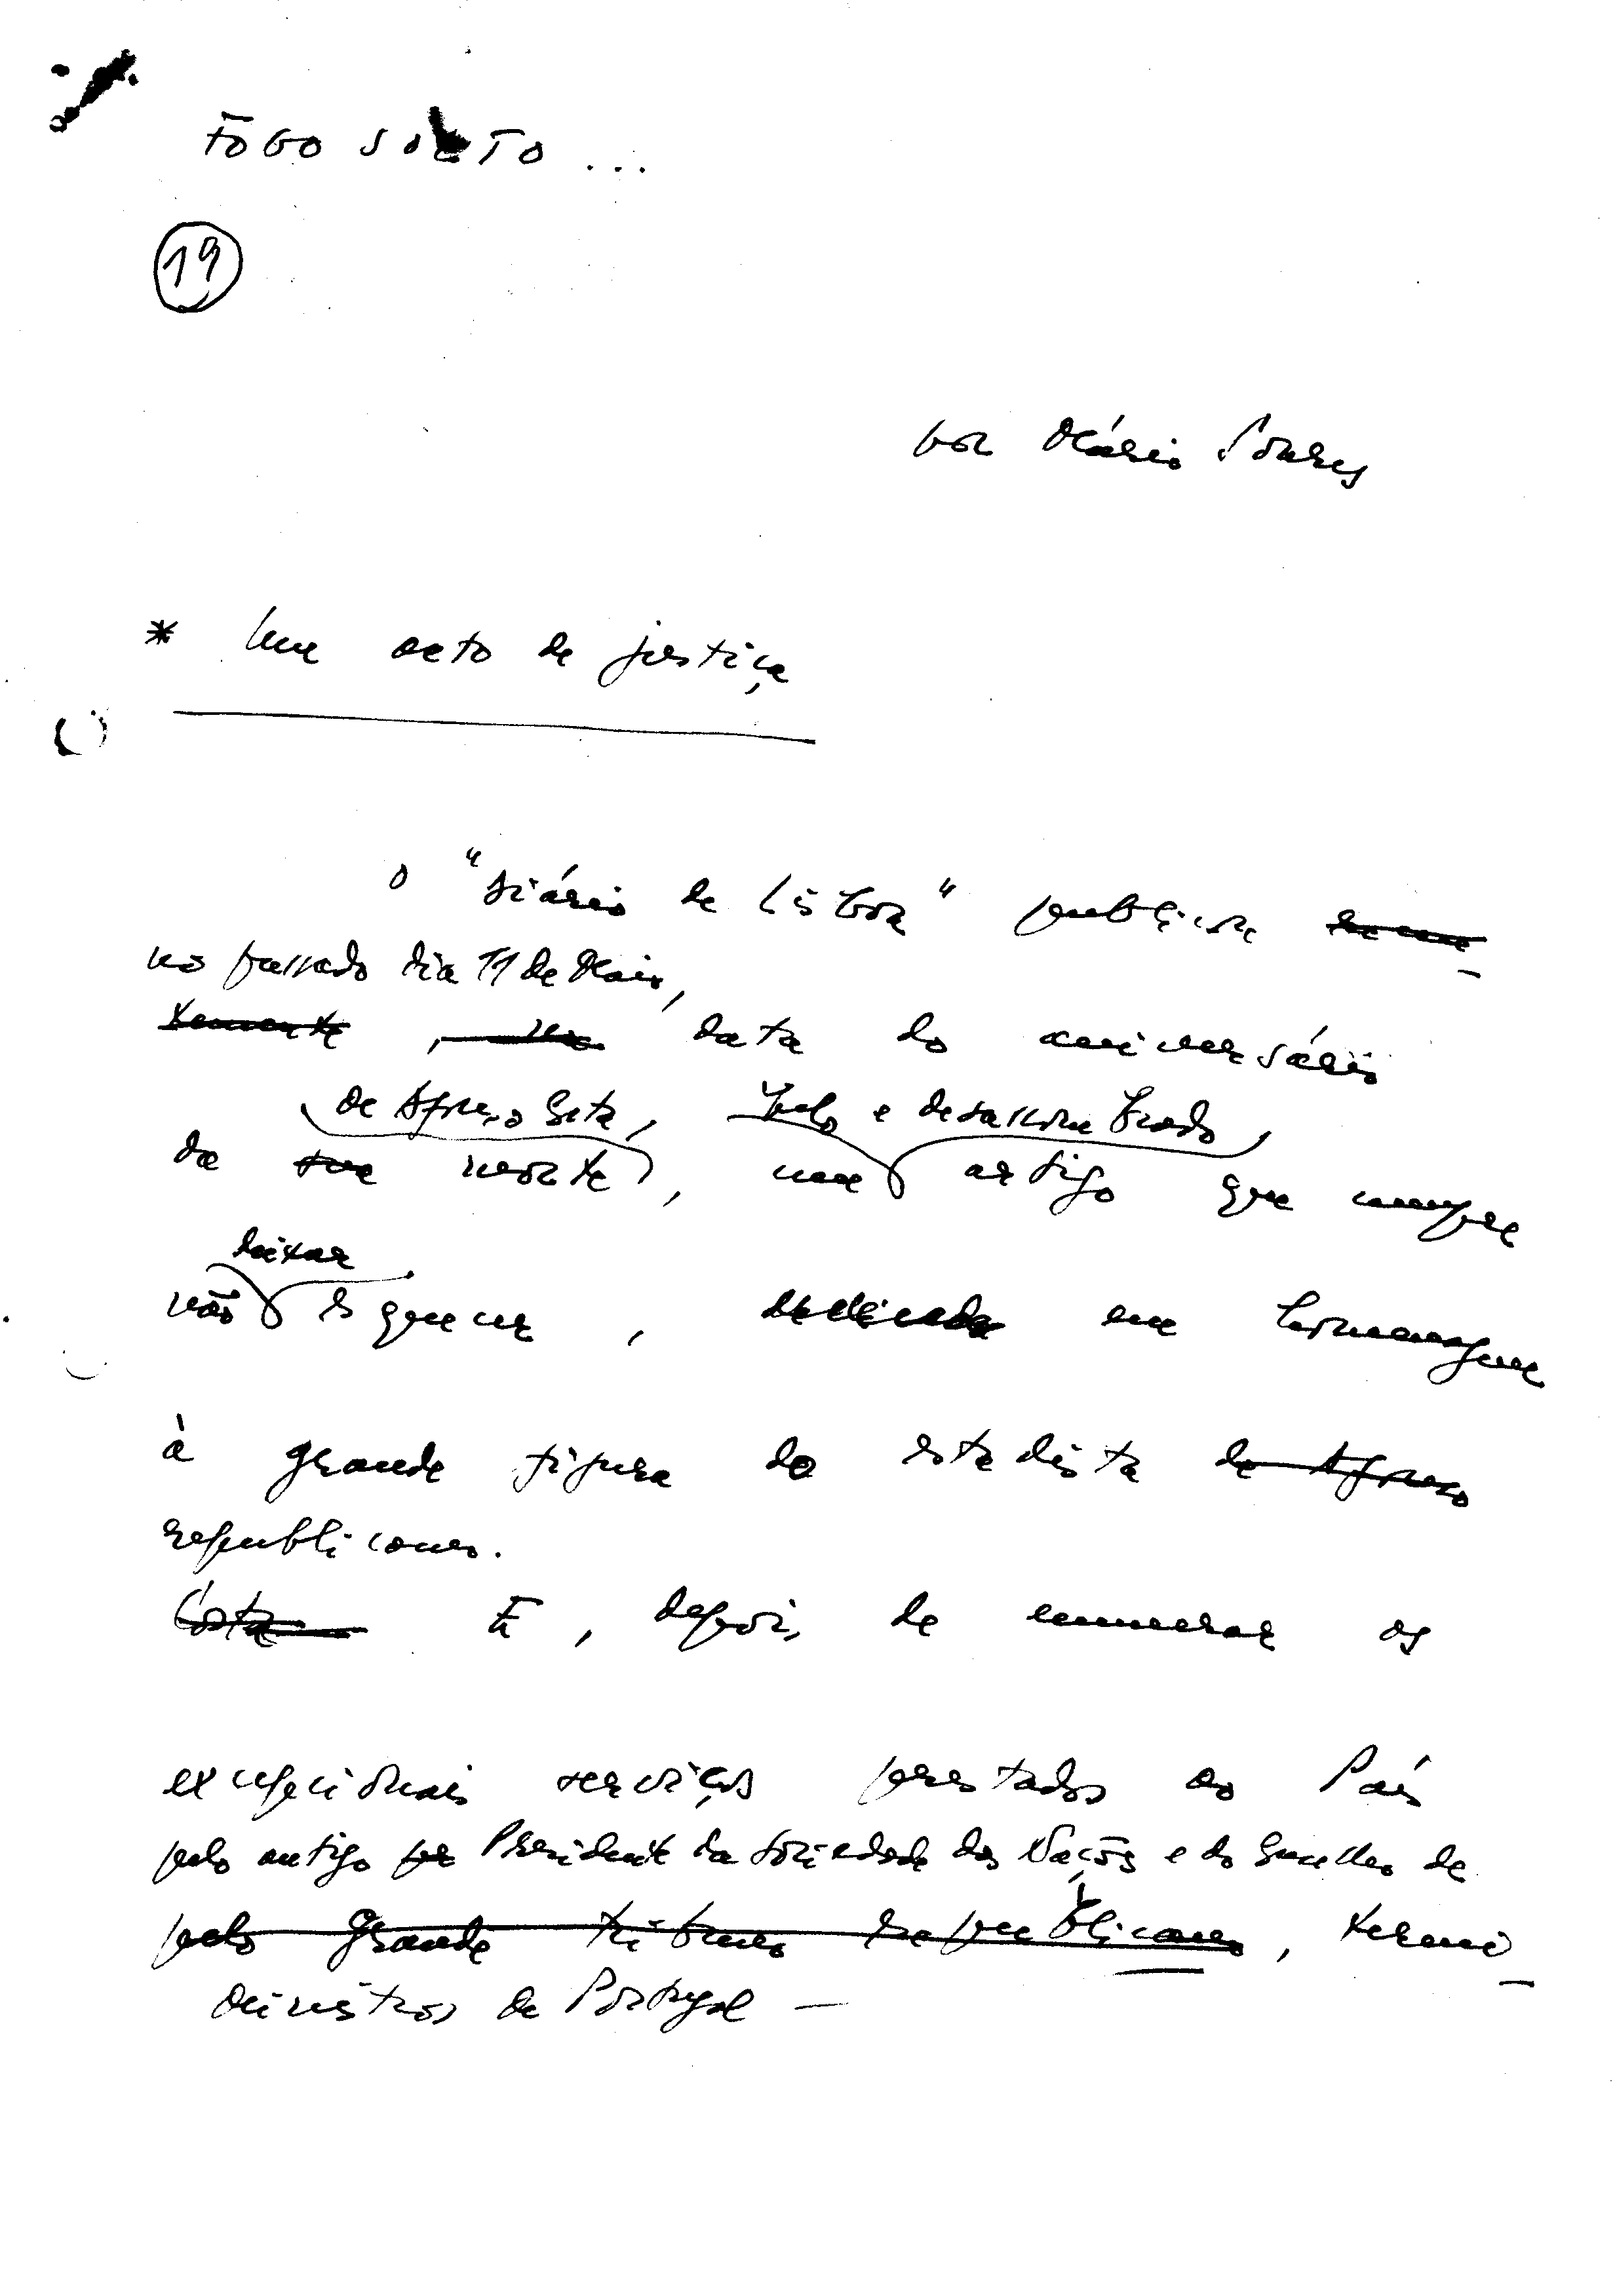 FOGO SOLTO...
19
por Mário Soares
* Um acto de justiça
O "Diário de Lisboa" publicou
no passado dia 11 de Maio,
data do aniversário
de Afonso Costa, belo e desassombrado,
da sua morte, um artigo que cumpre
deixar
não esquecer, dedicado em homenagem
à grande figura do estadista de Afonso
republicano.
Costa E, depois de enumerar os
excepcionais serviços prestados ao País
pelo antigo Presidente da Sociedade das Nações e do Conselho de
pelo grande tribuno republicano, termi-
Ministros de Portugal —